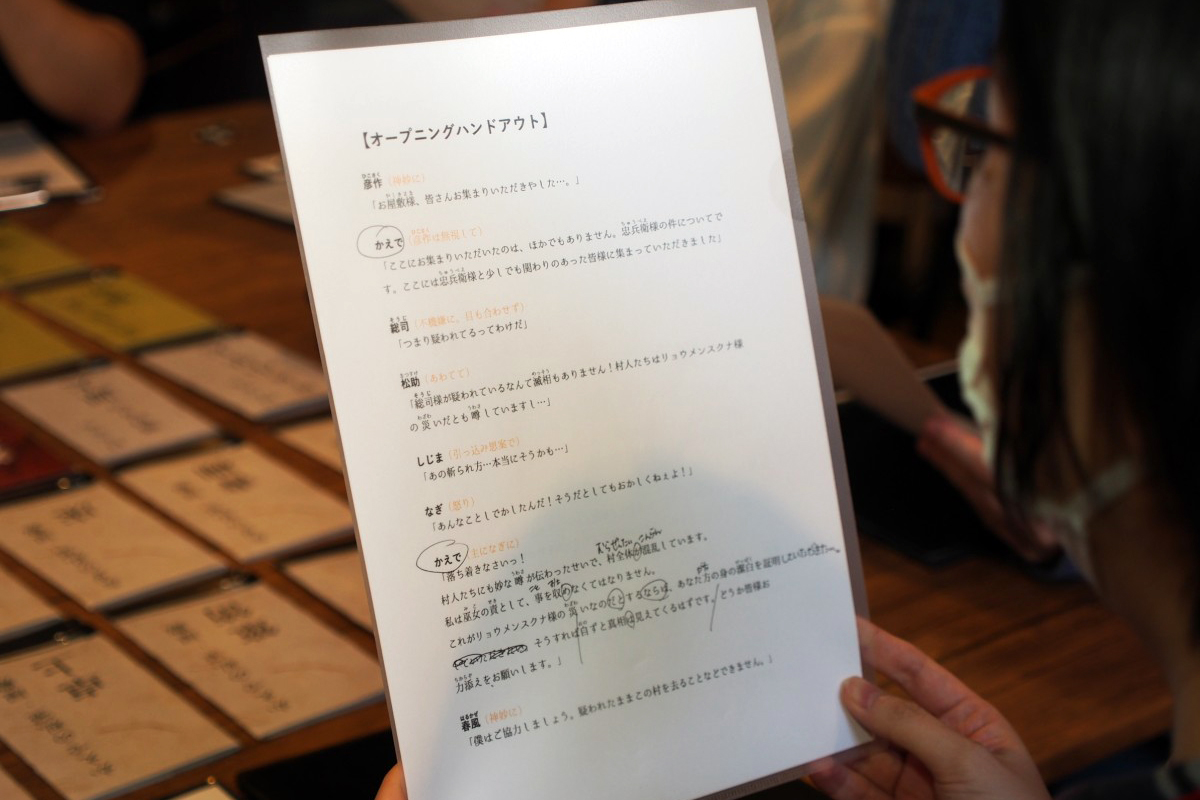 【オープニングハンドアウト】
彦作（神妙に）
「お屋敷様、皆さんお集まりいただきやした…。」
かえで（彦作は無視して）
「ここにお集まりいただいたのは、ほかでもありません。忠兵衛様の件についてで
す。ここには忠兵衛様と少しでも関わりのあった皆様に集まっていただきました」
総司（不機嫌に、目も合わせず）
「つまり疑われてるってわけだ」
松助（あわてて）
「総司様が疑われているなんて滅相もありません！村人たちはリョウメンスクナ様
の災いだとも噂していますし…」
しじま（引っ込み思案で）
「あの斬られ方…本当にそうかも…」
なぎ（怒り）
「あんなことしでかしたんだ！そうだとしてもおかしくねぇよ！」
かえで（主になぎに）
「落ち着きなさいっ！
村人たちにも妙な噂が伝わったせいで、村全体が混乱しています。
私は巫女の責として、事を収めなくてはなりません。
これがリョウメンスクナ様の災いなのだとするならば、あなた方の身の潔白を証明し
そうすれば自ずと真相は見えてくるはずです。どうか皆様お
力添えをお願いします。」
春風（神妙に）
「僕はご協力しましょう。疑われたままこの村を去ることなどできません。」